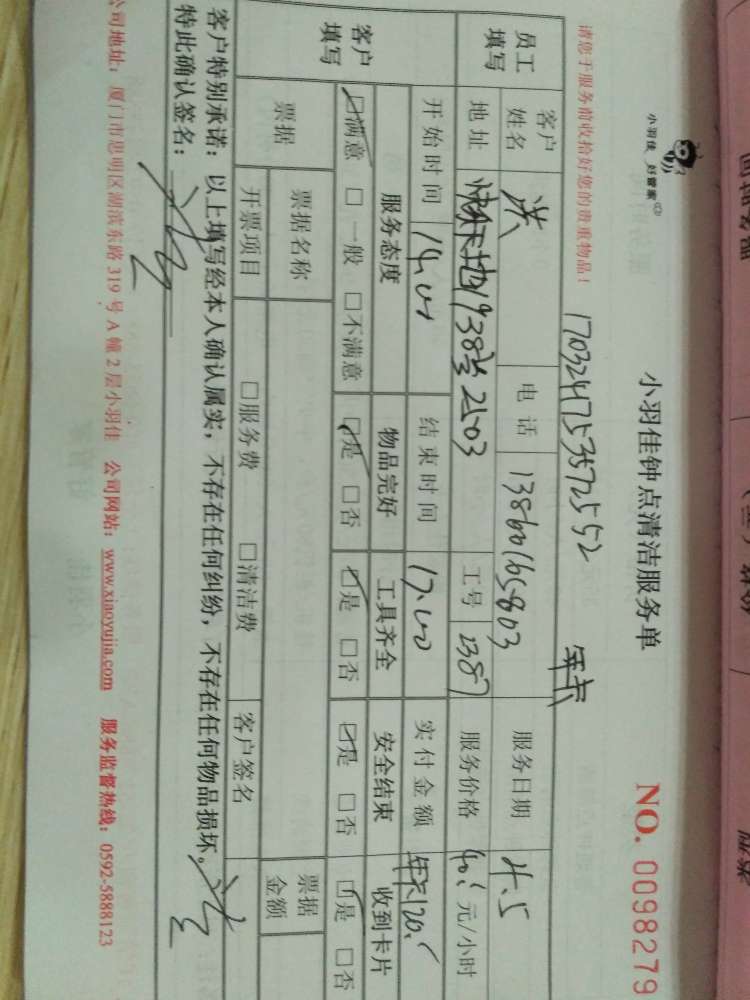 小羽佳 好管家
小羽佳钟点清洁服务单
NO. 0098279
请您于服务前收拾好您的贵重物品！
170324753572552
年卡
员工填写
客户姓名 洪 电话 13860165803 服务日期 4.5
地址 1938号2503 工号 1387 服务价格 40. 元/小时
开始时间 14.00 结束时间 17.00 实付金额 年卡120.
客户填写
服务态度 物品完好 工具齐全 安全结束 收到卡片
☑满意 □一般 □不满意 ☑是 □否 ☑是 □否 ☑是 □否 ☑是 □否
票据 票据名称 票据金额
开票项目 □服务费 □清洁费 客户签名
客户特别承诺：以上填写经本人确认属实，不存在任何纠纷，不存在任何物品损坏。
特此确认签名：
公司地址：厦门市思明区湖滨东路 319 号 A 幢 2 层小羽佳 公司网站：www.xiaoyujia.com 服务监督热线：0592-5888123